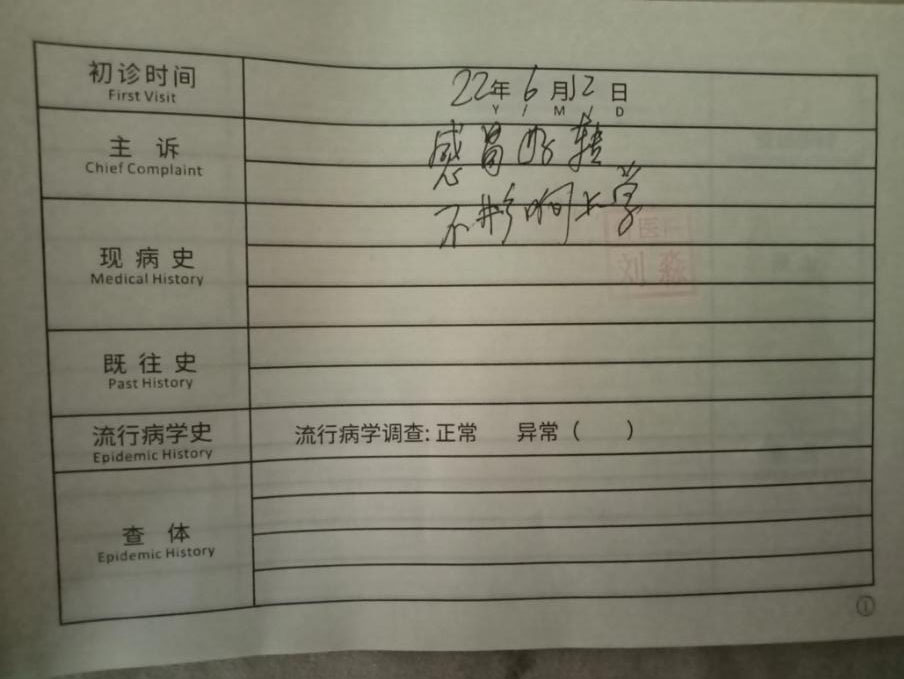 初诊时间 22年6月12日
First Visit Y / M D
主 诉 感冒好转
Chief Complaint
不影响上学
中医科
现病史 刘淼
Medical History
既往史
Past History
流行病学史 流行病学调查: 正常 异常 ( )
Epidemic History
查 体
Epidemic History
①